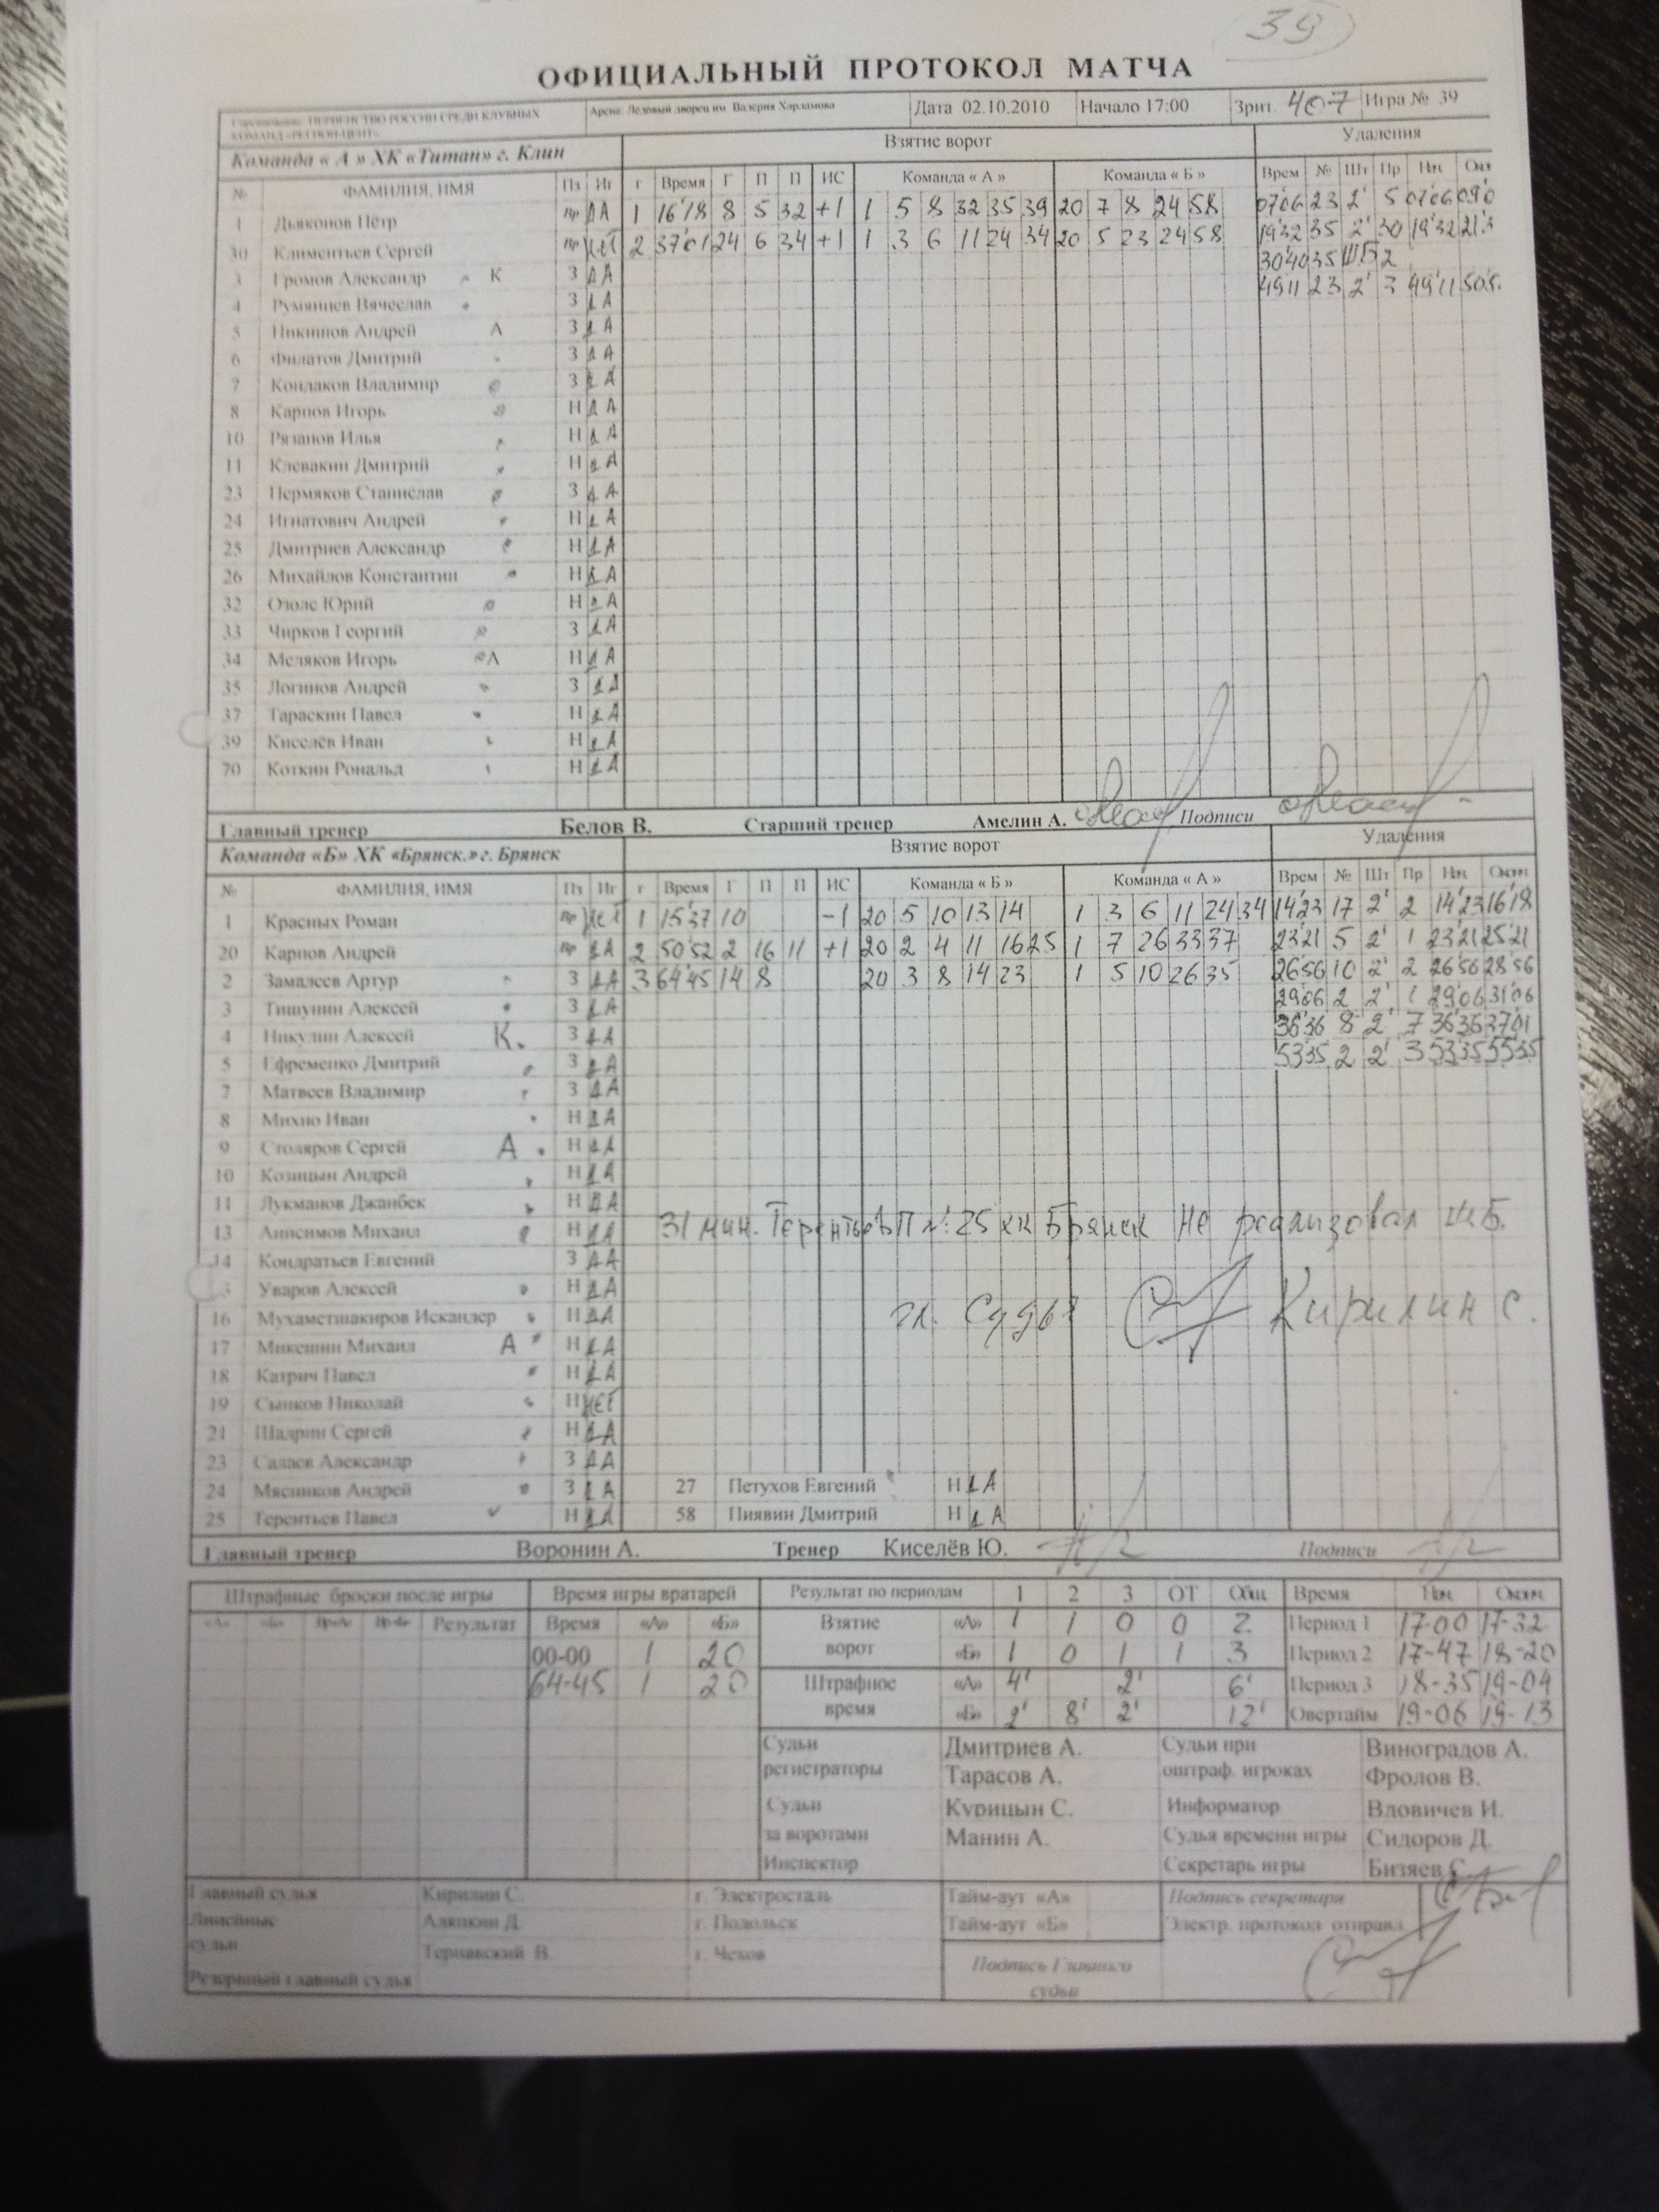 39
ОФИЦИАЛЬНЫЙ ПРОТОКОЛ МАТЧА
Соревнование: ПЕРВЕНСТВО РОССИИ СРЕДИ КЛУБНЫХ Арена: Ледовый дворец им. Валерия Харламова Дата 02.10.2010 Начало 17:00 Зрит. 407 Игра № 39
Команда « А » ХК «Титан» г. Клин Взятие ворот Удаления
№ ФАМИЛИЯ, ИМЯ Пз Иг г Время Г П П ИС Команда « А » Команда « Б » Врем № Шт Пр Нач Окон
1 Дьяконов Пётр Вр ДА 1 16'18 8 5 32 +1 1 5 8 32 35 39 20 7 8 24 58 07'06 23 2' 5 07'06 09'0
30 Климентьев Сергей Вр НЕТ 2 37'01 24 6 34 +1 1 3 6 11 24 34 20 5 23 24 58 19'32 35 2' 30 19'32 21'3
3 Громов Александр К З ДА 30'40 35 ШБ 2
4 Румянцев Вячеслав З ДА 49'11 23 2' 3 49'11
5 Никишов Андрей А З ДА
6 Филатов Дмитрий З ДА
7 Кондаков Владимир З ДА
8 Карпов Игорь Н ДА
10 Рязанов Илья Н ДА
11 Клевакин Дмитрий Н ДА
23 Пермяков Станислав З ДА
24 Игнатович Андрей Н ДА
25 Дмитриев Александр Н ДА
26 Михайлов Константин Н ДА
32 Озолс Юрий Н ДА
33 Чирков Георгий З ДА
34 Меляков Игорь А Н ДА
35 Логинов Андрей З ДА
37 Тараскин Павел Н ДА
39 Киселёв Иван Н ДА
70 Коткин Рональд Н ДА
Главный тренер Белов В. Старший тренер Амелин А. Подписи
Команда «Б» ХК «Брянск.» г. Брянск Взятие ворот Удаления
№ ФАМИЛИЯ, ИМЯ Пз Иг г Время Г П П ИС Команда « Б » Команда « А » Врем № Шт Пр Нач Окон
1 Красных Роман Вр НЕТ 1 15'37 10 -1 20 5 10 13 14 1 3 6 11 24 34 14'23 17 2' 2 14'23 16'18
20 Карпов Андрей Вр ДА 2 50'52 2 16 11 +1 20 2 4 11 16 25 1 7 26 33 37 23'21 5 2' 1 23'21 25'21
2 Замалеев Артур З ДА 3 64'45 14 8 20 3 8 14 23 1 5 10 26 35 26'56 10 2' 2 26'56 28'56
3 Тишунин Алексей З ДА 29'06 2 2' 1 29'06 31'06
4 Никулин Алексей К. З ДА 36'36 8 2' 7 36'36 37'01
5 Ефременко Дмитрий З ДА 53'35 2 2' 3 53'35 55'35
7 Матвеев Владимир З ДА
8 Михно Иван Н ДА
9 Столяров Сергей А Н ДА
10 Козицын Андрей Н ДА
11 Лукманов Джанбек Н ДА
13 Анисимов Михаил Н ДА 31 мин. Терентьев П №25 ХК Брянск не реализовал ШБ.
14 Кондратьев Евгений З ДА
Уваров Алексей Н ДА
16 Мухаметшакиров Искандер Н ДА гл. Судья Кирилин С.
17 Микешин Михаил А Н ДА
18 Катрич Павел Н ДА
19 Сынков Николай Н НЕТ
21 Шадрин Сергей Н ДА
23 Салаев Александр З ДА
24 Мясников Андрей З ДА 27 Петухов Евгений Н ДА
25 Терентьев Павел Н ДА 58 Пиявин Дмитрий Н ДА
Главный тренер Воронин А. Тренер Киселёв Ю. Подписи
Штрафные броски после игры Время игры вратарей Результат по периодам 1 2 3 ОТ Общ Время Нач. Оконч.
«А» «Б» ВрА» ВрБ» Результат Время «А» «Б» Взятие ворот «А» 1 1 0 0 2 Период 1 17-00 17-32
00-00 1 20 «Б» 1 0 1 1 3 Период 2 17-47 18-20
64-45 1 20 Штрафное время «А» 4' 2' 6' Период 3 18-35 19-04
«Б» 2' 8' 2' 12' Овертайм 19-06 19-13
Судьи регистраторы Дмитриев А. Судьи при оштраф. игроках Виноградов А.
Тарасов А. Фролов В.
Судьи за воротами Курицын С. Информатор Вдовичев И.
Манин А. Судья времени игры Сидоров Д.
Инспектор Секретарь игры Бизяев С.
Главный судья Кирилин С. г. Электросталь Тайм-аут «А» Подпись секретаря
Линейные судьи Аляпкин Д. г. Подольск Тайм-аут «Б» Электр. протокол отправл.
Терлавский В. г. Чехов Подпись Главного судьи
Резервный главный судья